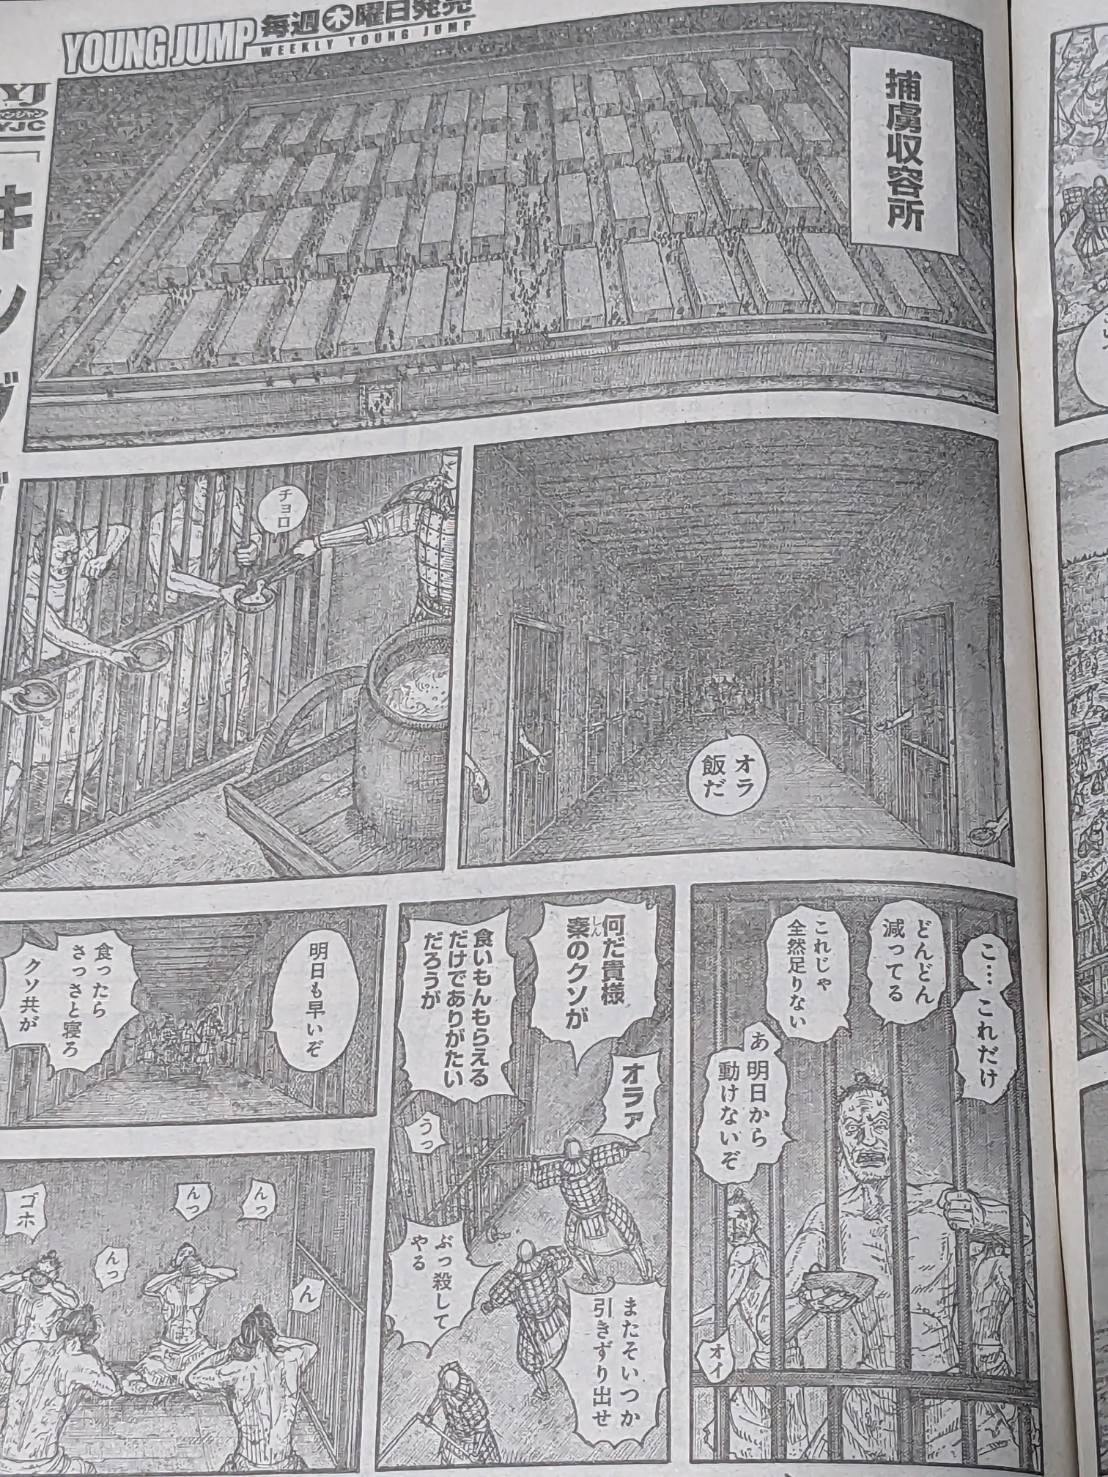 YOUNG JUMP
毎週木曜日発売
WEEKLY YOUNG JUMP
YJC
捕虜収容所
オラ
飯だ
チョロ
こ…これだけ
どんどん
減ってる
これじゃ
全然足りない
あ 明日から
動けないぞ
オイ
何だ貴様
秦のクソが
しん
オラァ
食いもんもらえる
だけでありがたい
だろうが
うっ
またそいつか
引きずり出せ
ぶっ殺して
やる
明日も早いぞ
食ったら
さっさと寝ろ
クソ共が
んっ
んっ
んっ
ん
ゴホ